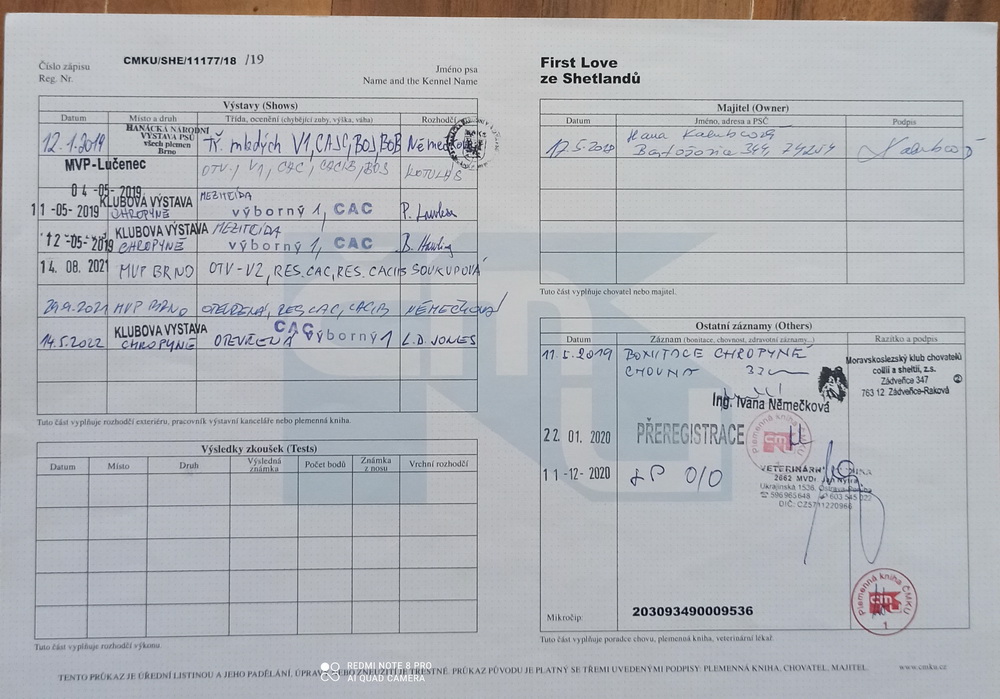 Číslo zápisu
Reg. Nr.
CMKU/SHE/11177/18 /19
Jméno psa
Name and the Kennel Name
First Love
ze Shetlandů
Výstavy (Shows)
Datum Místo a druh Třída, ocenění (chybějící zuby, výška, váha) Rozhodčí
12.1.2019 HANÁCKÁ NÁRODNÍ VÝSTAVA PSŮ všech plemen Brno Tř. mladých V1, CAJC, BOJ BOB
MVP-Lučenec
04 -05- 2019 OTV, V1, CAC, CACIB, BOS KOTULAS
11 -05- 2019 KLUBOVÁ VÝSTAVA CHROPYNĚ MEZITŘÍDA výborný 1, CAC
12 -05- 2019 KLUBOVÁ VÝSTAVA CHROPYNĚ MEZITŘÍDA výborný 1, CAC
14. 08. 2021 MVP BRNO OTV-V2, RES.CAC, RES. CACIB SOUKUPOVÁ
29.9.2021 MVP BRNO OTEVŘENÁ, RES CAC, CACIB NĚMEČKOVÁ
14.5.2022 KLUBOVA VÝSTAVA CHROPYNĚ OTEVŘENÁ CAC výborný 1 L.D. JONES
Tuto část vyplňuje rozhodčí exteriéru, pracovník výstavní kanceláře nebo plemenná kniha.
Výsledky zkoušek (Tests)
Datum Místo Druh Výsledná známka Počet bodů Známka z nosu Vrchní rozhodčí
Tuto část vyplňuje rozhodčí výkonu.
Majitel (Owner)
Datum Jméno, adresa a PSČ Podpis
Hana Kalubcová
Bartošovice 344, 74254
Tuto část vyplňuje chovatel nebo majitel.
Ostatní záznamy (Others)
Datum Záznam (bonitace, chovnost, zdravotní záznamy...) Razítko a podpis
11.5.2019 BONITACE CHROPYNĚ
CHOVNÁ
Ing. Ivana Němečková
Moravskoslezský klub chovatelů
collií a sheltií, z.s.
Zádveřice 347
763 12 Zádveřice-Raková
22. 01. 2020 PŘEREGISTRACE
Plemenná kniha ČMKU
11 -12- 2020 LP 0/0
2662 MVDr.
Ukrajinská 1536,
596 965 648
Mikročip: 203093490009536
Plemenná kniha ČMKU
1
Tuto část vyplňuje poradce chovu, plemenná kniha, veterinární lékař.
TENTO PRŮKAZ JE ÚŘEDNÍ LISTINOU A JEHO PADĚLÁNÍ, TRESTNÉ. PRŮKAZ PŮVODU JE PLATNÝ SE TŘEMI UVEDENÝMI PODPISY: PLEMENNÁ KNIHA, CHOVATEL, MAJITEL.
www.cmku.cz
REDMI NOTE 8 PRO
AI QUAD CAMERA